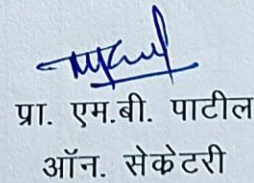 प्रा. एम.बी. पाटील
ऑन. सेकेटरी